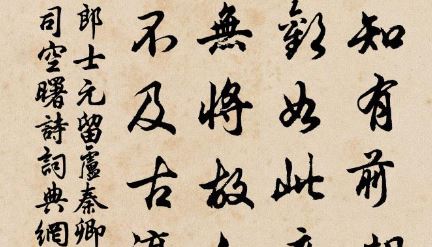 知有前
歡如此
無將故
不及古
郎士元留盧秦卿
司空曙詩詞典網